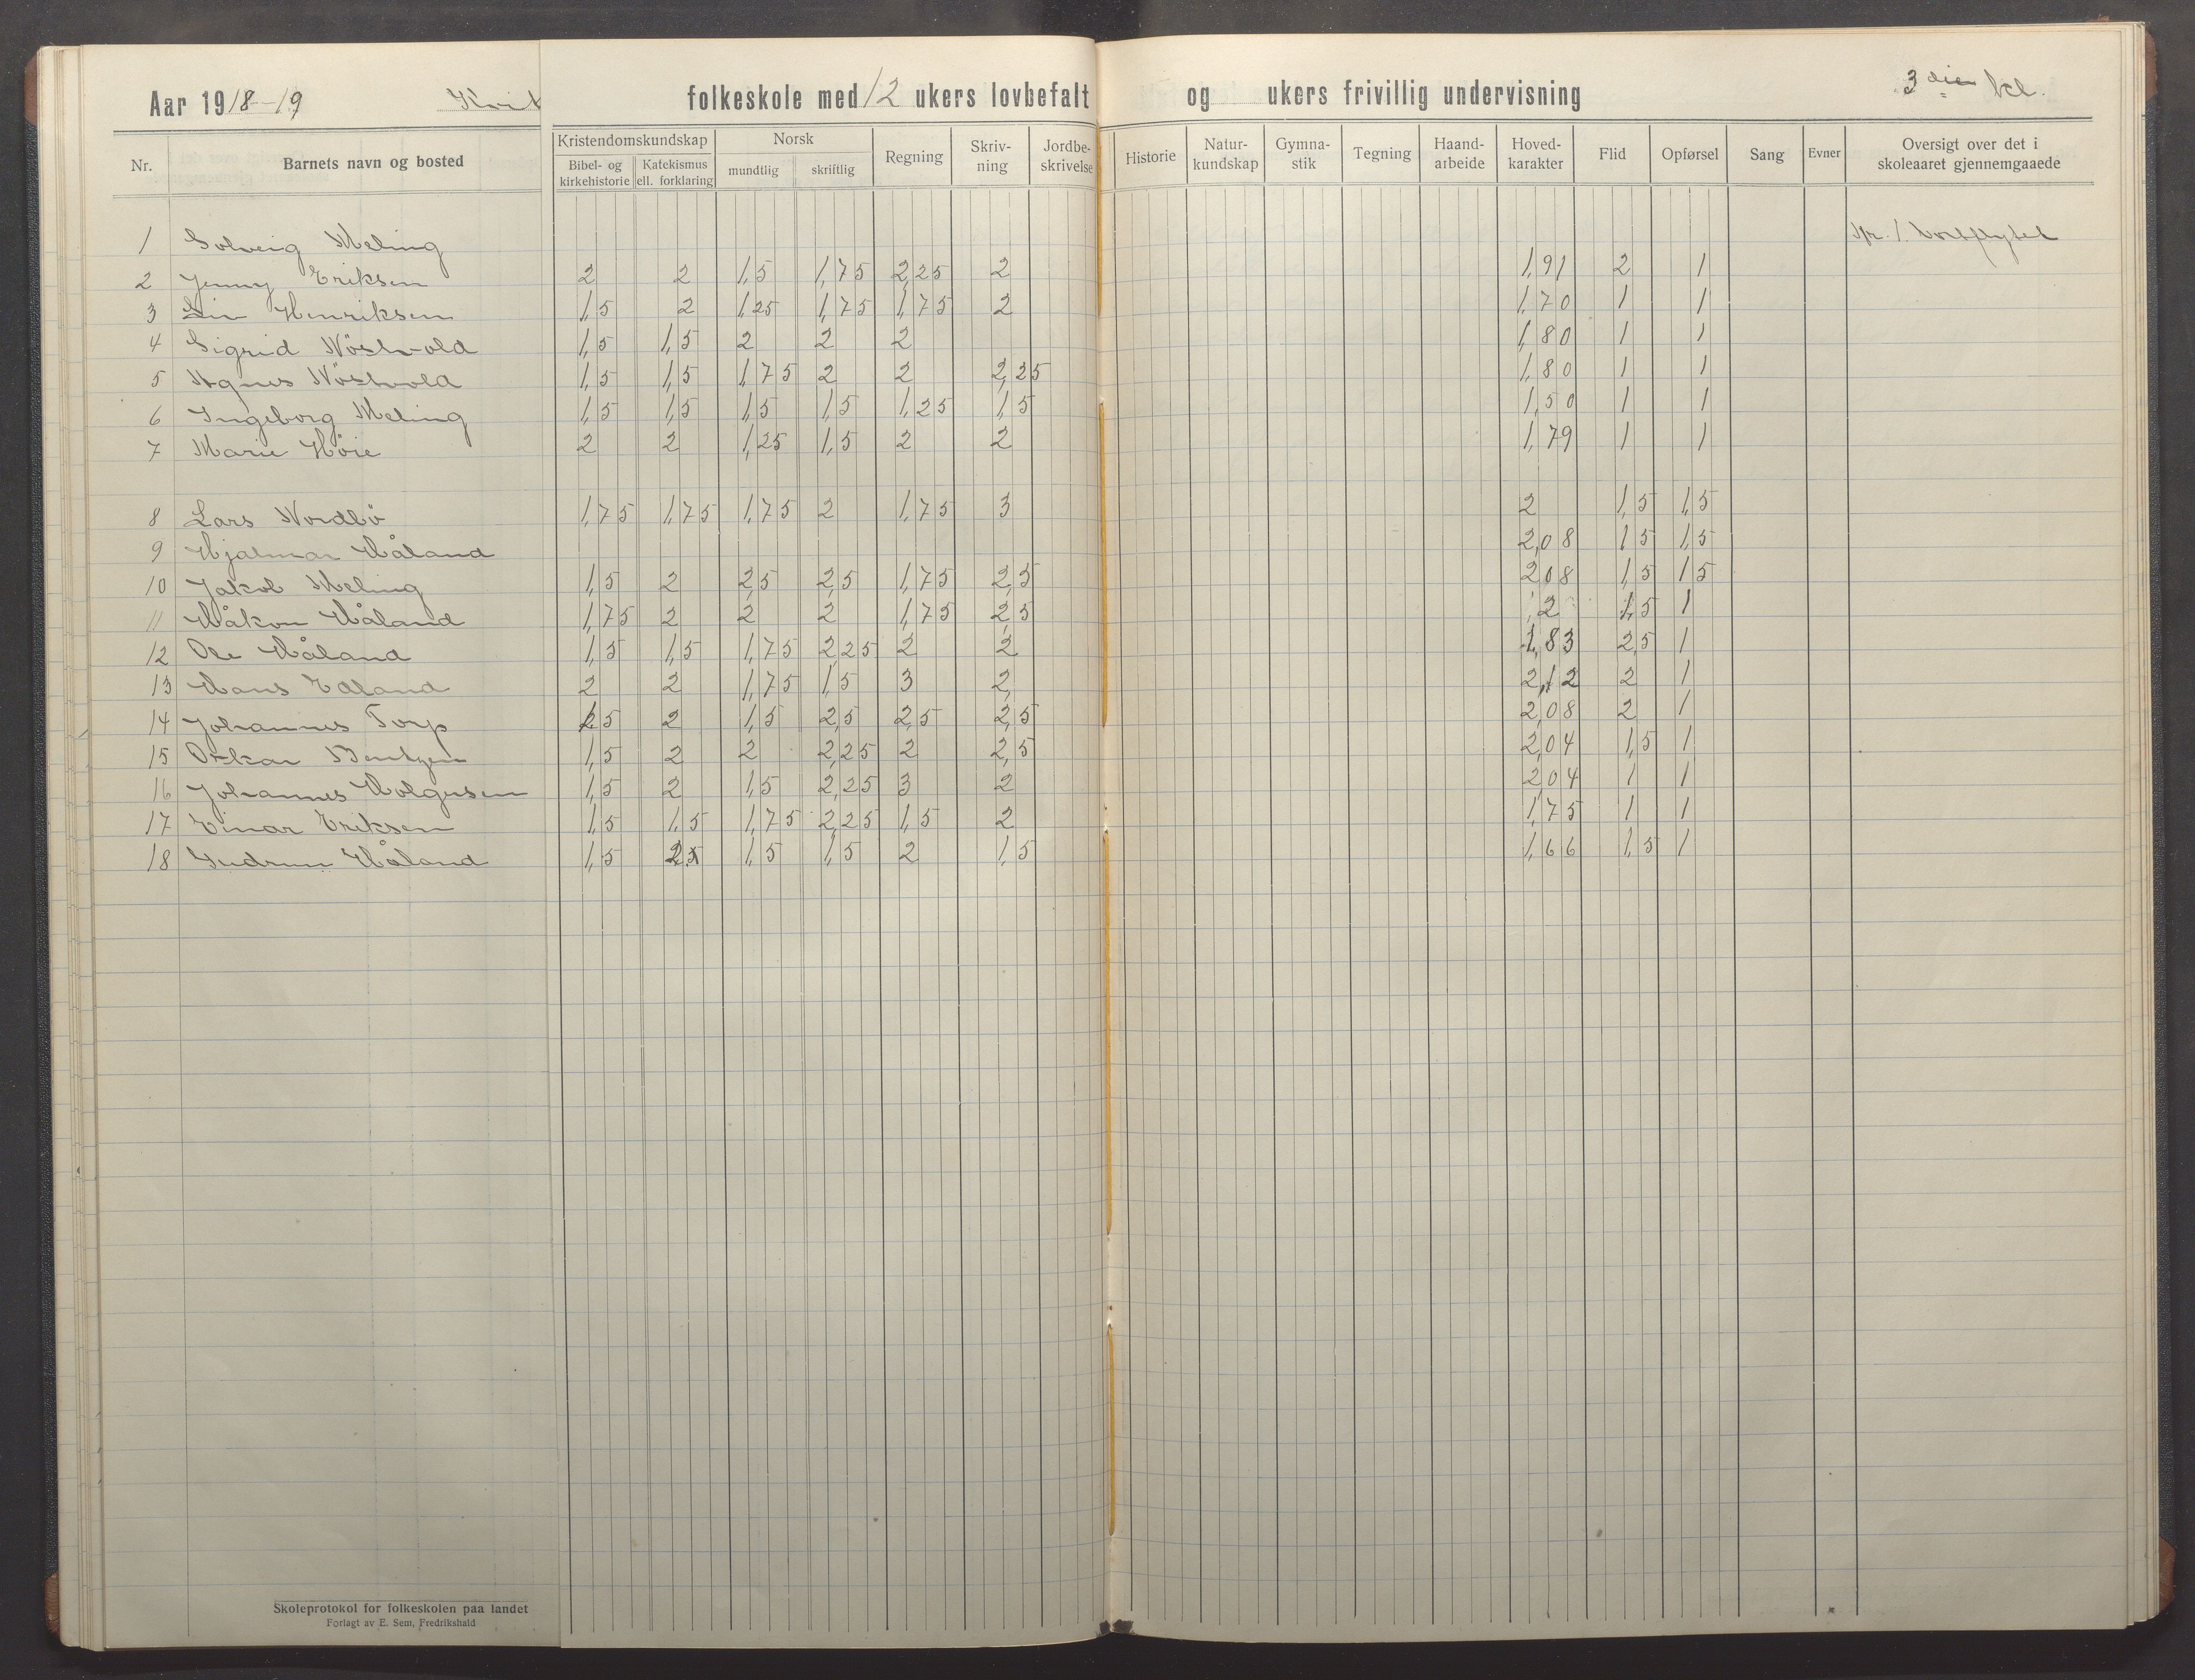 Aar 1918-19 Kvit folkeskole med 12 ukers lovbefalt og ukers frivillig undervisning 3 die kl.
Nr. Barnets navn og bosted Kristendomskundskap Bibel- og kirkehistorie Katekismus ell. forklaring Norsk mundtlig skriftlig Regning Skriv-ning Jordbe-skrivelse Historie Natur-kundskap Gymna-stik Tegning Haand-arbeide Hoved-karakter Flid Opførsel Sang Evner Oversigt over det i skoleaaret gjennemgaaede
1 Solveig Meling bortflyttet
2 Jenny Eriksen 2 2 1,5 1,75 2,25 2 1,91 2 1
3 Henriksen 1,5 2 1,25 1,75 1,75 2 1,70 1 1
4 Sigrid Nöstvold 1,5 1,5 2 2 2 1,80 1 1
5 Agnes Nöstvold 1,5 1,5 1,75 2 2 2,25 1,80 1 1
6 Ingeborg Meling 1,5 1,5 1,5 1,5 1,25 1,5 1,50 1 1
7 Marie Höie 2 2 1,25 1,5 2 2 1,79 1 1
8 Lars Nordbö 1,75 1,75 1,75 2 1,75 3 2 1,5 1,5
9 Hjalmar Håland 2,08 1,5 1,5
10 Jakob Meling 1,5 2 2,5 2,5 1,75 2,5 2,08 1,5 1,5
11 Håkon Håland 1,75 2 2 2 1,75 2,5 2 1,5 1
12 Ole Håland 1,5 1,5 1,75 2,25 2 2 1,83 2,5 1
13 Hans Edland 2 2 1,75 1,5 3 2 2,12 2 1
14 Johannes Torp 5 2 1,5 2,5 2,5 2,5 2,08 2 1
15 Oskar Bentzen 1,5 2 2 2,25 2 2,5 2,04 1,5 1
16 Johannes Holgersen 1,5 2 1,5 2,25 3 2 2,04 1 1
17 Einar Eriksen 1,5 1,5 1,75 2,25 1,5 2 1,75 1 1
18 Gudrun Håland 1,5 1,5 1,5 2 1,5 1,66 1,5 1
Skoleprotokol for folkeskolen paa landet
Forlagt av E. Sem, Fredrikshald